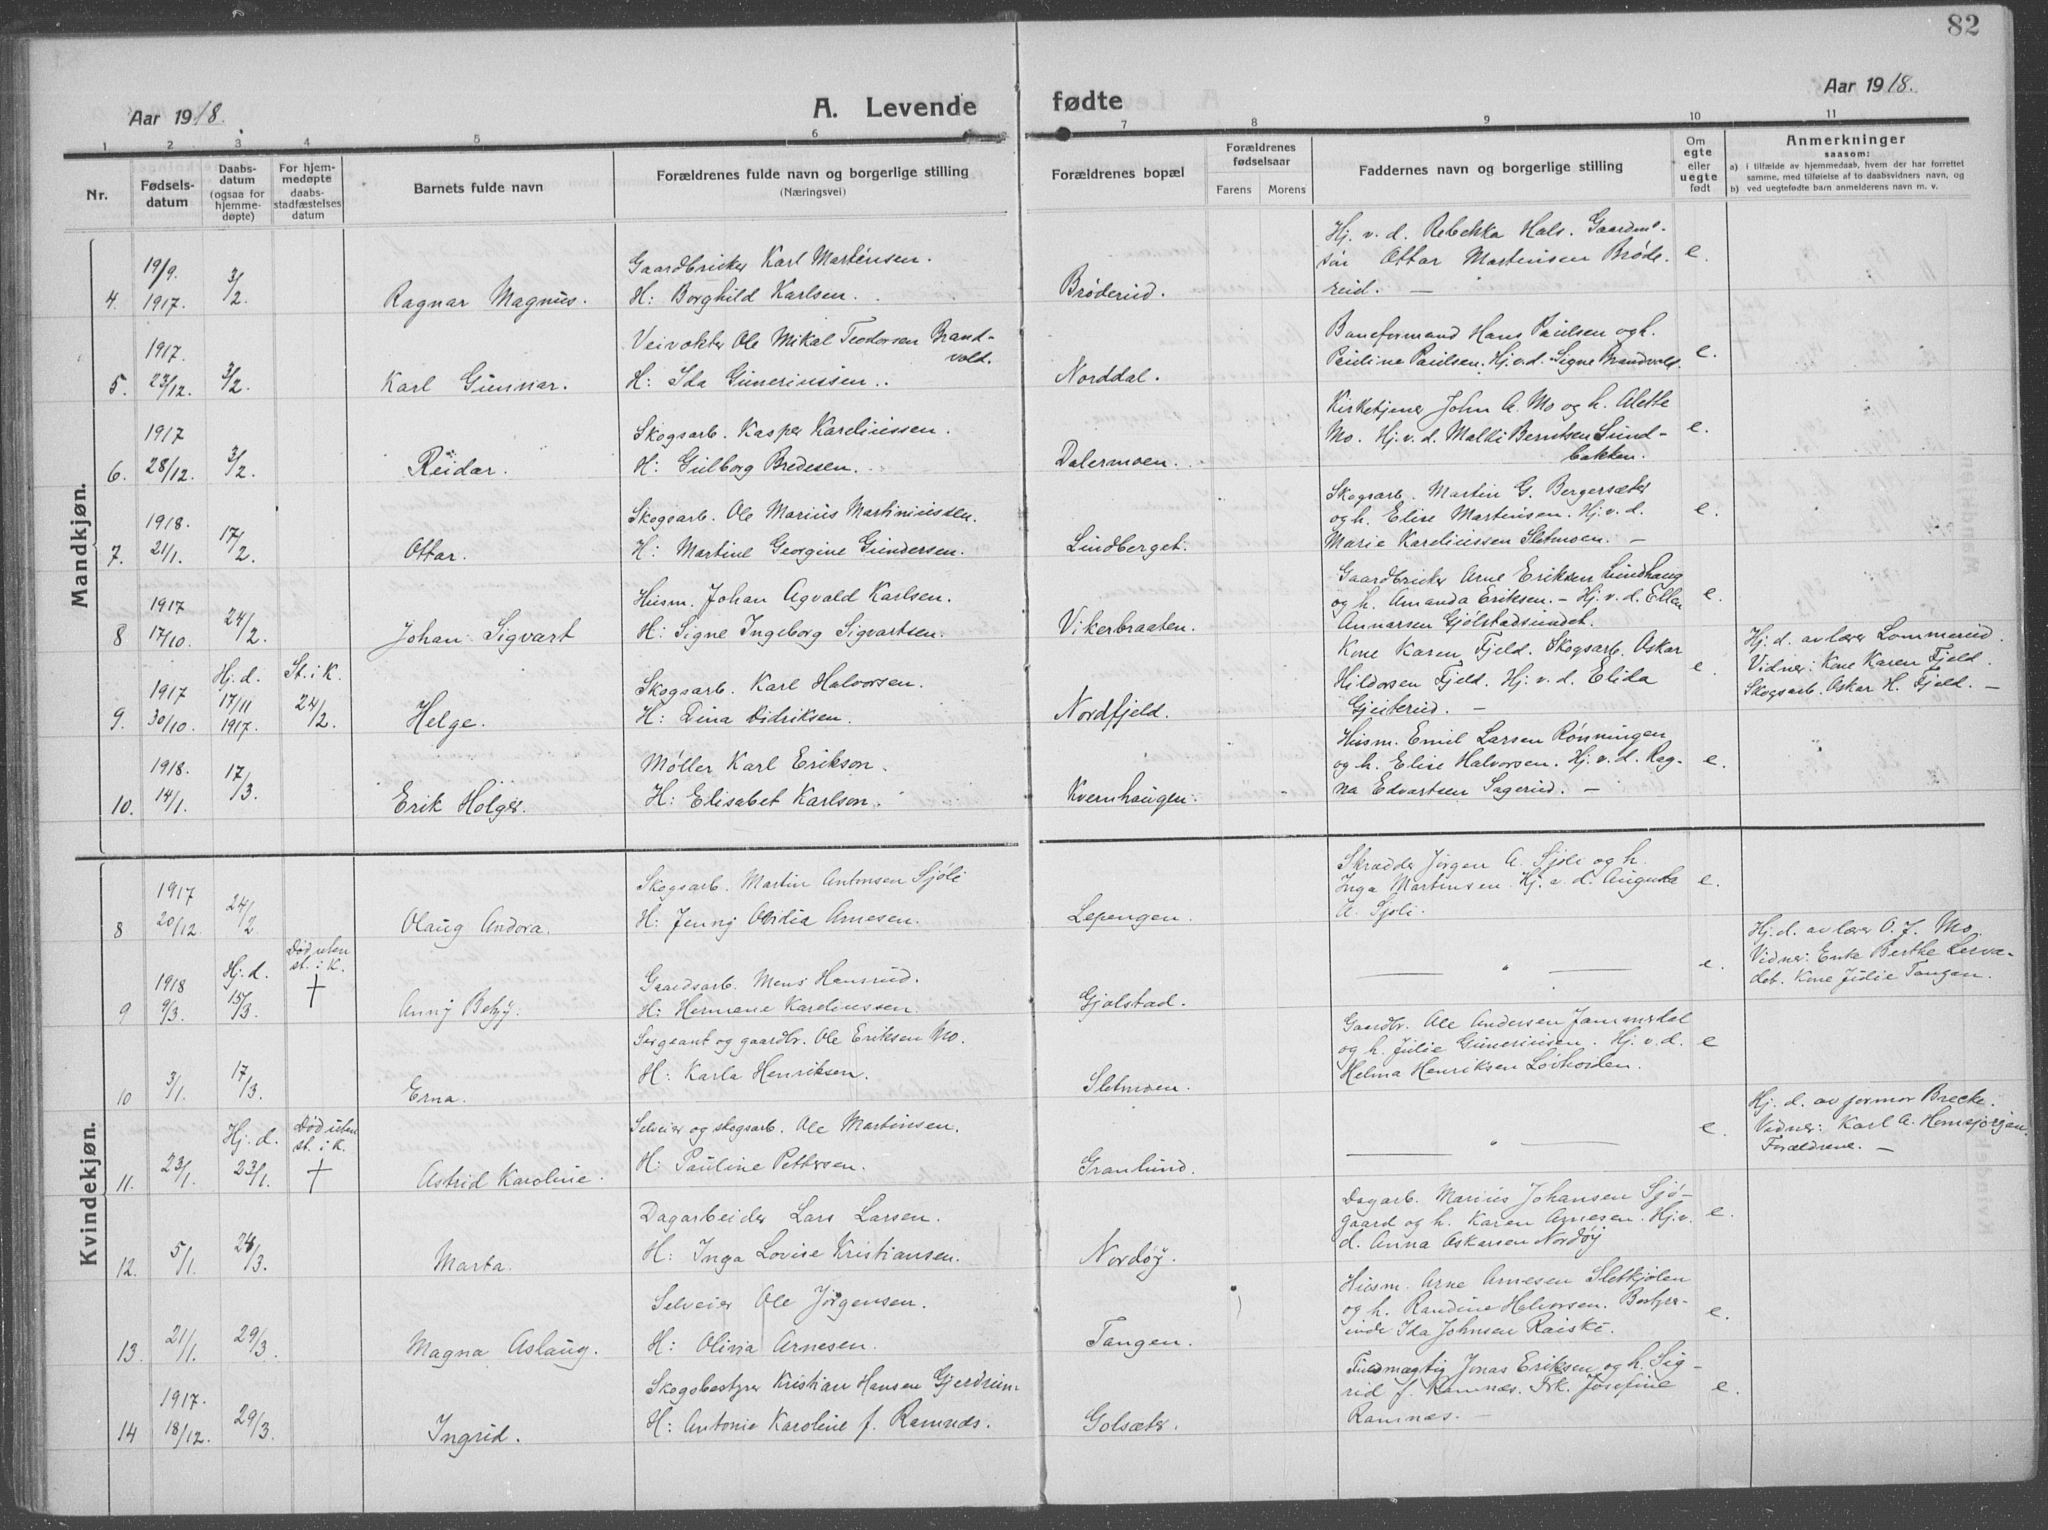 82
Aar 1918.
A. Levende
fødte
Aar 1918.
1 2 3 4 5 6 7 8 9 10 11
Nr.
Fødsels-
datum
Daabs-
datum
(ogsaa for
hjemme-
døpte)
For hjem-
medøpte
daabs-
stadfæstelses
datum
Barnets fulde navn
Forældrenes fulde navn og borgerlige stilling
(Næringsvei)
Forældrenes bopæl
Forældrenes
fødselsaar
Farens Morens
Faddernes navn og borgerlige stilling
Om
egte
eller
uegte
født
Anmerkninger
saasom:
a) i tilfælde av hjemmedaab, hvem der har forrettet
samme, med tilføielse af to daabsvidners navn, og
b) ved uegtefødte barn anmelderens navn m. v.
Mandkjøn.
4. 19/9. 1917. 3/2. Ragnar Magnus.
Gaardbruker Karl Martinsen.
H: Borghild Karlsen.
Brøderud.
Hj. v. d. Rebekka Hals. Gaardm-
Ottar Martinsen Brøde-
reid. —
e.
5. 1917. 23/12. 3/2. Karl Gunnar.
Veivokter Ole Mikal Teodorsen Brand-
vold.
H: Ida Guneriussen.
Norddal.
Baneformand Hans Paulsen og h.
Pauline Paulsen. Hj. v. d. Signe Brandvold.
e.
6. 1917 28/12. 3/2. Reidar.
Skogsarb. Kasper Kareliussen.
H: Gulborg Bredesen.
Dalermoen.
Kirketjener John A. Mo og h. Alette
Mo. Hj. v. d. Malli Berntsen Sund-
bakken.
e.
7. 1918. 21/1. 17/2. Ottar.
Skogsarb. Ole Marius Martiniussen.
H: Martine Georgine Gundersen.
Lindberget.
Skogsarb. Martin G. Bergersæter
og h. Elise Martinsen. Hj. v. d.
Marie Kareliussen Sletmoen. —
e.
8 1917 17/10. 24/2. Johan Sigvart
Husm. Johan Agvald Karlsen.
H: Signe Ingeborg Sigvartsen.
Vikerbraaten.
Gaardbruker Arne Eriksen Lundhaug
og h. Amanda Eriksen. — Hj. v. d. Ellen
Annarsen Gjølstadsundet.
e.
9. 1917 30/10. Hj. d. 17/11 1917. St. i K. 24/2. Helge.
Skogsarb. Karl Halvorsen.
H: Dina Didriksen.
Nordfjeld.
Kone Karen Fjeld. Skogsarb. Oskar
Hildorsen Fjeld. Hj. v. d. Elida
Gjeiterud. —
e.
Hj. d. av lærer Lommerud.
Vidner: Kone Karen Fjeld.
Skogsarb. Oskar H. Fjeld. —
10. 1918. 14/1. 17/3. Erik Holger.
Møller Karl Erikson.
H: Elisabet Karlson.
Kvernhaugen.
Husm. Emil Larsen Rønningen
og h. Elise Halvorsen. Hj. v. d. Rag-
na Edvartsen Sagerud. —
e.
Kvindekjøn.
8 1917 20/12. 24/2 Olaug Andora.
Skogsarb. Martin Antonsen Sjøli
H: Jenny Arnesen.
Lepengen.
Skrædder Jørgen A. Sjøli og h.
Inga Martinsen. Hj. v. d. Augusta
A. Sjøli.
e.
9 1918 9/3. Hj. d. 15/3. Død uten st. i K. † Anny Betzy.
Gaardsarb. Mens Hansrud.
H: Hermane Kareliussen.
Gjølstad.
— " —
e.
Hj. d. av lærer O. J. Mo.
Vidner: Enke Berthe Lerva-
det. Kone Julie Tangen.
10 3/1. 17/3. Erna.
Sergeant og gaardbr. Ole Eriksen Mo.
H: Karla Henriksen.
Sletmoen.
Gaardbr. Ole Andersen Jammerdal
og h. Julie Guneriusen. Hj. v. d.
Helma Henriksen
e
11. 23/1. Hj. d. 23/1. Død uten st. i K. † Astrid Karoline.
Selveier og skogsarb. Ole Martinsen.
H: Pauline Pettersen.
Granlund.
— " —
e.
Hj. d. av jormor Brecke.
Vidner: Karl A. Homsjørgen.
Forældrene. —
12. 5/1. 24/3. Marta.
Dagarbeider Lars Larsen.
H: Inga Lovise Kristiansen.
Nordøy.
Dagarb. Marius Johansen Sjø-
gaard og h. Karen Arnesen. Hj. v.
d. Anna Askersen Nordøy
e.
13. 21/1. 29/3. Magna Aslaug.
Selveier Ole Jørgensen.
H: Olivia Arnesen.
Tangen.
Husm. Arne Arnesen Sletkjølen
og h. Randine Halvorsen. Bestyre-
inde Ida Johnsen Raiske.
e.
14 1917. 18/12. 29/3. Ingrid.
Skogsbestyrer Kristian Hansen Gjerdrum
H: Antonie Karoline f. Ramnæs.
Golsæter.
Fuldmægtig Jonas Eriksen og h. Sig-
rid f. Ramnæs. Frk. Josefine
Ramnæs. —
e.